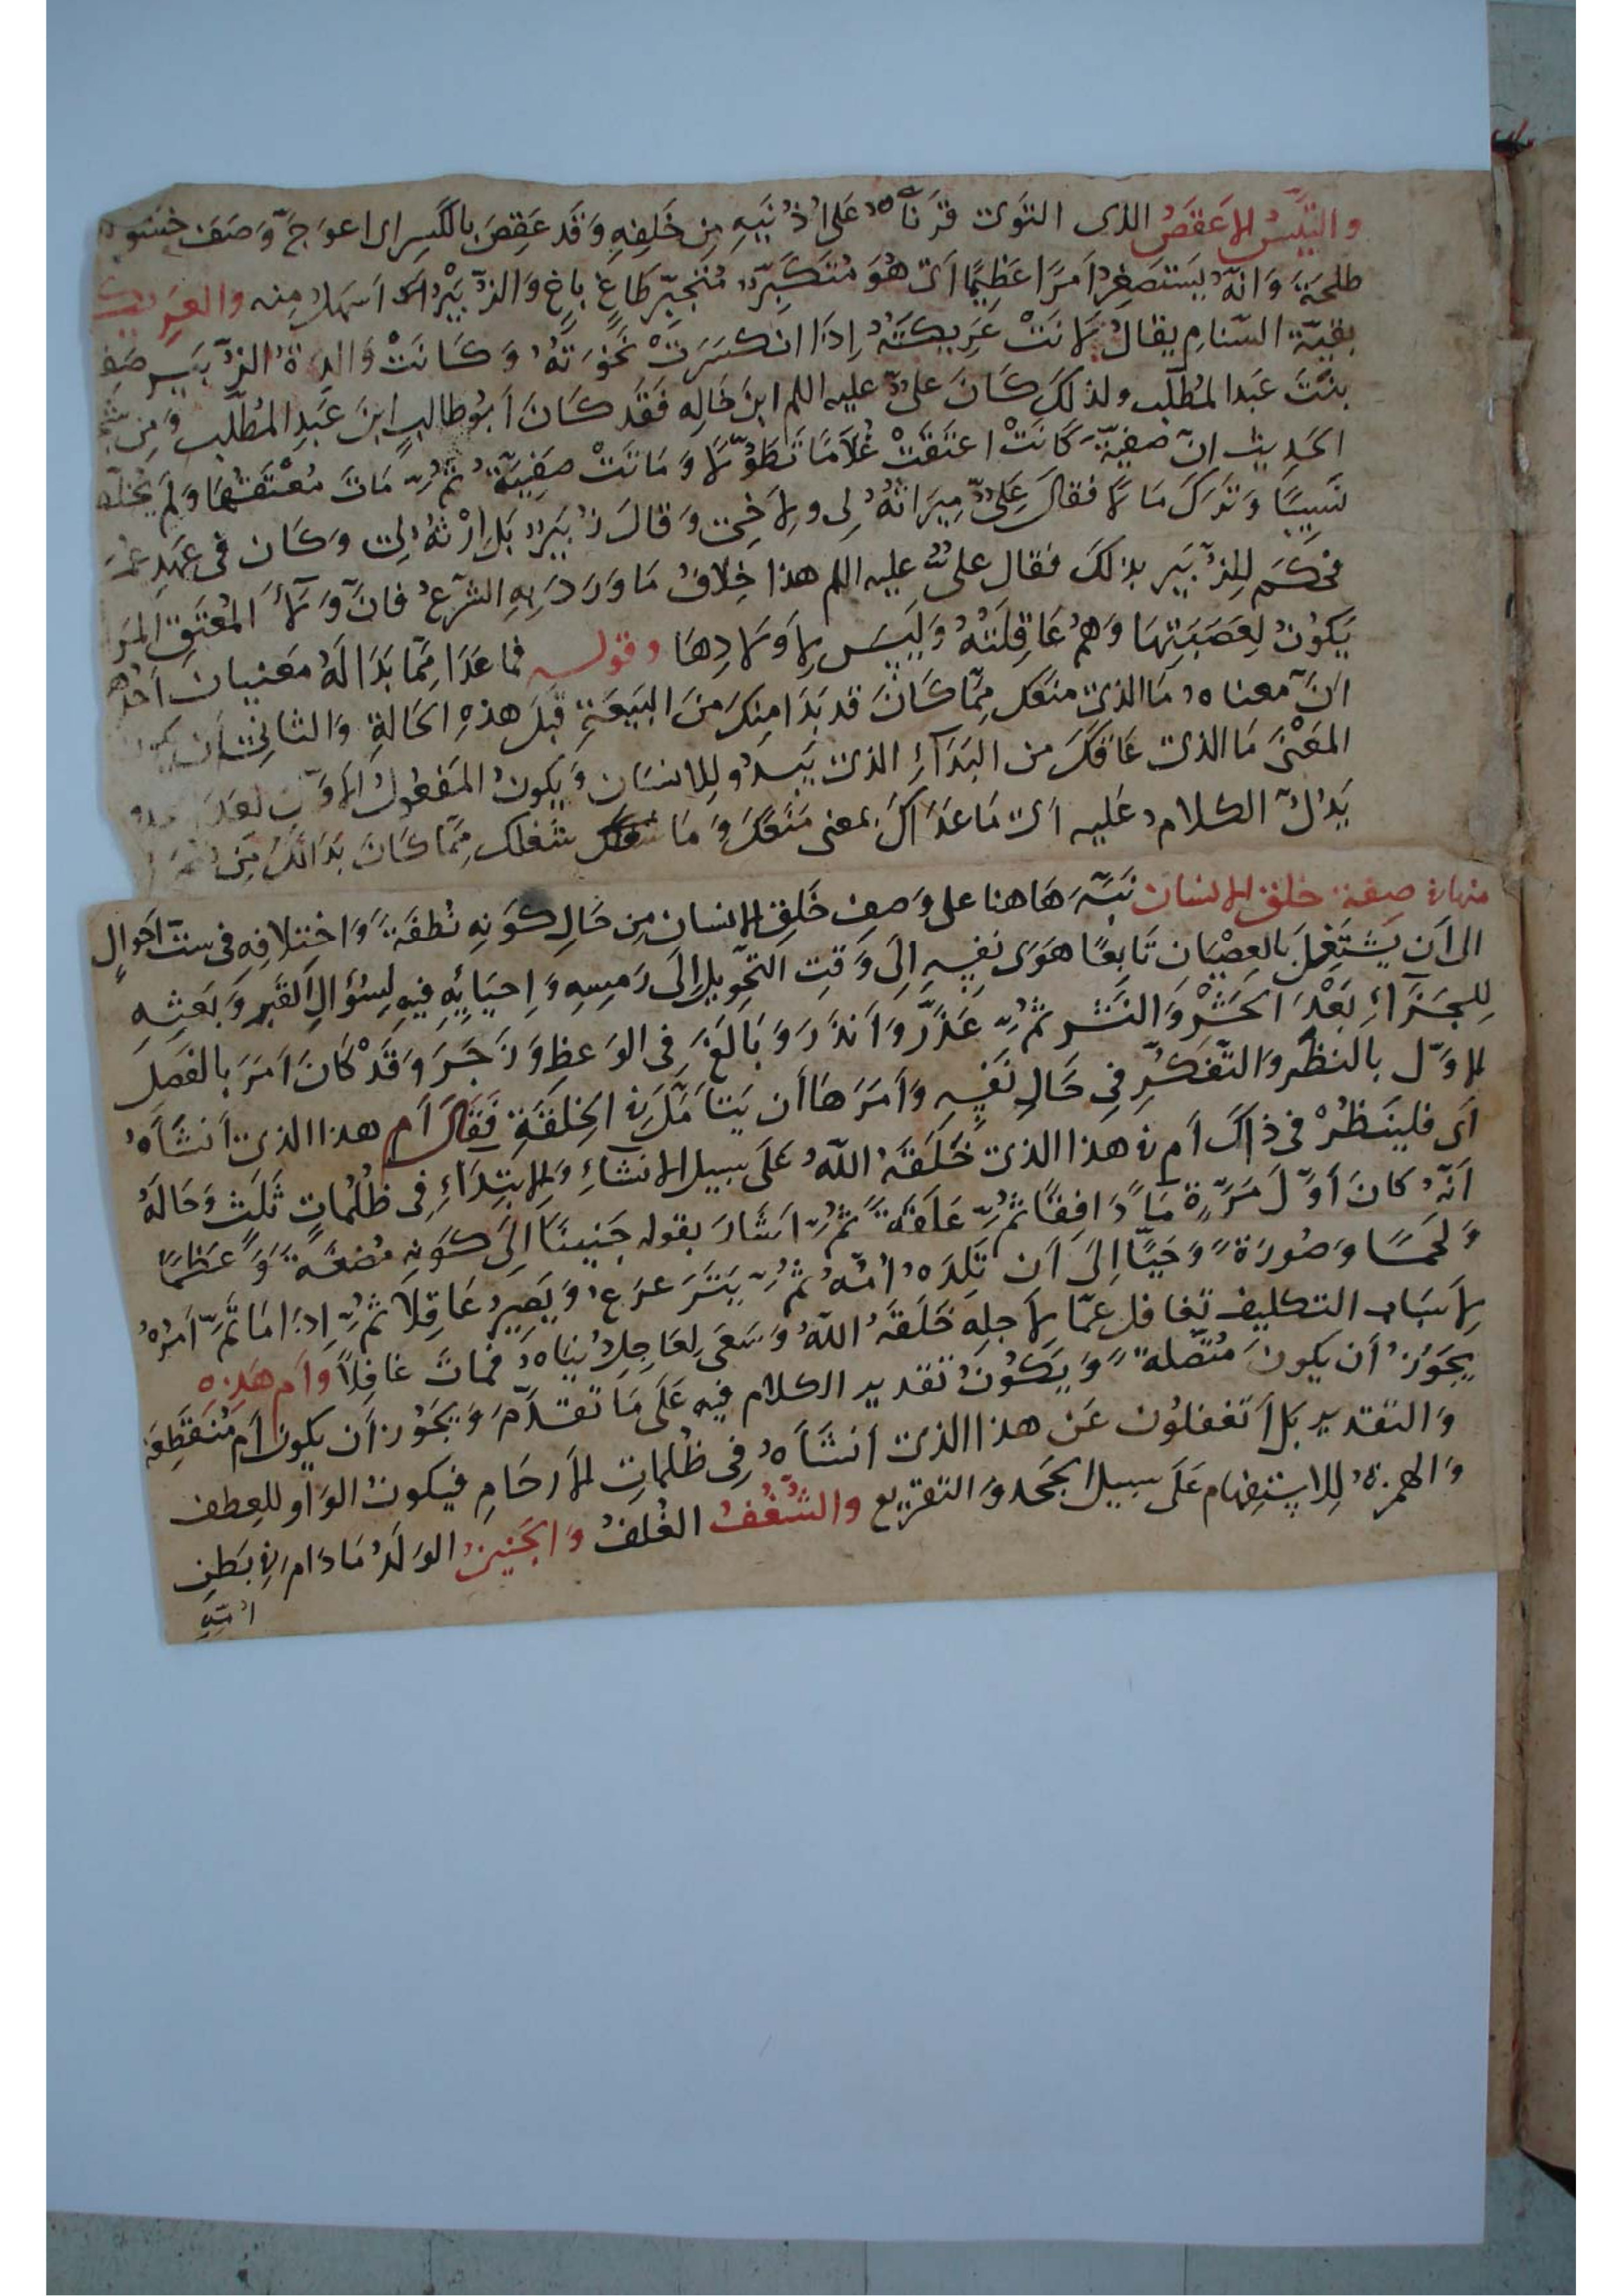 والتَّيسُ الاَعقَصُ الذى التَوَى قَرنَاهُ عَلى اُذُنَيهِ مِن خَلفِهِ وَقَد عَقِصَ بالكَسرِ اى اعوَجَّ وَصَفَ
طلحَةَ وَانّهُ يَستَصغِرُ اَمرًا عَظِيمًا اَى هُوَ مُتَكَبِّرٌ مُتَجَبِّرٌ طَاغٍ بَاغٍ وَالزُّبَيْرُ اَسهَلُ مِنه والعَرِيكة
بقيّة السَّنامِ يقالُ لَانَتْ عَرِيكَتُهُ اِذَا انكسَرَتْ نَخوَتُهُ وَكَانَتْ وَالِدَةُ الزُّبَيرِ
بنتَ عَبدالمُطَّلب ولذلكَ كَانَ علىٌّ عليه اللم ابنَ خَالِه فَقَد كَانَ اَبُوطالبٍ ابنَ عَبدِ المُطَّلب وَمِن
الحَديث انّ صفيّةَ كَانَتْ اعتَقَتْ غُلَامًا تَطَوُّلًا وَمَاتَتْ صَفِيّةُ ثُمّ مَاتَ مُعْتَقُهَا وَلَم يُخَلِّف
نَسِيبًا وَتَرَكَ مَالًا فقالَ عَلِىٌّ مِيرَاثُهُ لِى ولِاَخِى وَقالَ زُبَيرٌ بَل اِرْثُهُ لِى وَكَان فى عَهدِ عُمَرَ
فحَكَمَ لِلزُّبَيرِ بذلكَ فقال علىٌّ عليه اللم هذا خِلافُ مَا وَرَدَ بِهِ الشَّرعُ فَانَّ وَلَاءَ المُعتَقِ
يَكُونُ لِعَصَبَتِهَا وَهُم عَاقِلَتُهُ وَلَيسَ لِاَولَادِهَا وقوله فما عَدَا مِمّا بَدَا لَهُ مَعنيان
اَنّ معناهُ مَا الذى مَنَعَكَ مِمّا كَانَ قد بَدَا مِنكَ مِنَ البَيعَةِ قَبلَ هذهِ الحَالةِ وَالثانِى اَن يكون
المَعْنَى مَا الذى عَاقَكَ من البَدَآءِ الذى يَبدُو لِلانسَان وَيكونُ المَفعُولُ الاوّل
يَدُلّ الكلامُ عَليه اَى مَا عَدَاكَ بمعنى مَنَعَكَ وَمَا شَغَلَك مِمّا كَانَ بَدَا لَكَ مِن
منها فى صفة خلق الانسان نَبَّهَ هَاهنا على وَصف خَلقِ الانسان مِن حَالِ كَونِهِ نُطفَةً وَاختلافِهِ فى ستّ اَحوَالٍ
الى اَن يَشتَغِلَ بالعِصْيَان تَابِعًا هَوَى نَفسِهِ اِلَى وَقتِ التَّحوِيلِ اِلَى رَمسِهِ وَاِحيَائِهِ فِيهِ لِسُؤَالِ القَبرِ وَبَعثِهِ
لِلجَزَآءِ بَعْدَ الحَشْرِ وَالنَّشرِ ثُمّ حَذَّرَ وَاَنذَرَ وَبَالَغَ فى الوَعظِ وَزَجَرَ وَقَدْ كَانَ اَمَرَ بالفَصلِ
الاوّل بالنظَرِ وَالتَّفَكُّرِ فى حَالِ نَفسِهِ وَأَمَرَهَا أَن يَتَأَمَّلَ فى الخِلقَةِ فَقَالَ أَم هذا الذى أنشَأهُ
اَى فليَنظُرْ فى ذاكَ اَم فى هَذَا الذى خَلَقَهُ اللهُ عَلَى سبيل الانشاءِ وَالابتِدَاءِ فِى ظُلُمَاتٍ ثَلٰثٍ وَحَالُهُ
اَنّهُ كَانَ أَوَّلَ مَرّةٍ مَاءً دَافِقًا ثُمّ عَلَقَةً ثُمّ اَشَارَ بقوله جَنِينًا اِلَى كَونِهِ مُضغَةً وَعَظمًا
وَلَحمًا وَصُورَةً وَحَيًّا اِلَى اَن تَلِدَهُ اُمُّهُ ثُمّ يَتَرَعرَعُ وَيَصِيرُ عَاقِلًا ثُمّ اِذَا مَا تَمَّ اَمرُهُ
لِاَسبَاب التكليف تغَافل عمّا لِاَجلِه خَلَقَهُ اللهُ وَسَعَى لِعَاجِلِ دُنيَاهُ فَمَاتَ غَافِلًا وأم هَذِه
يجَوزُ أن يكونَ مُتّصلةً وَيَكُونُ تقديرِ الكلام فيهِ عَلَى مَا تَقَدَّمَ وَيَجوُز أن يكون أَم مُنقَطِعَةً
وَالتقدير بَل أَتَغفلُون عَن هذا الذى اَنشَاَهُ فِى ظُلماتِ الأرحَامِ فيكونُ الوَاو للعِطف
وَالهمزةُ لِلاستِفهَام عَلَى سبيل الجَحد وَالتقرِيع والشُّغُفُ الغُلُفُ وَالجَنِينُ الوَلَدُ مَادَام فى بَطنِ
اُمّهِ